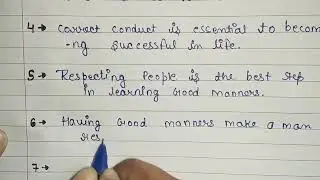 4 → Correct conduct is essential to becom
-ng successful in life.
5 → Respecting People is the best step
in learning Good manners.
6 → Having Good manners make a man
res
7 →